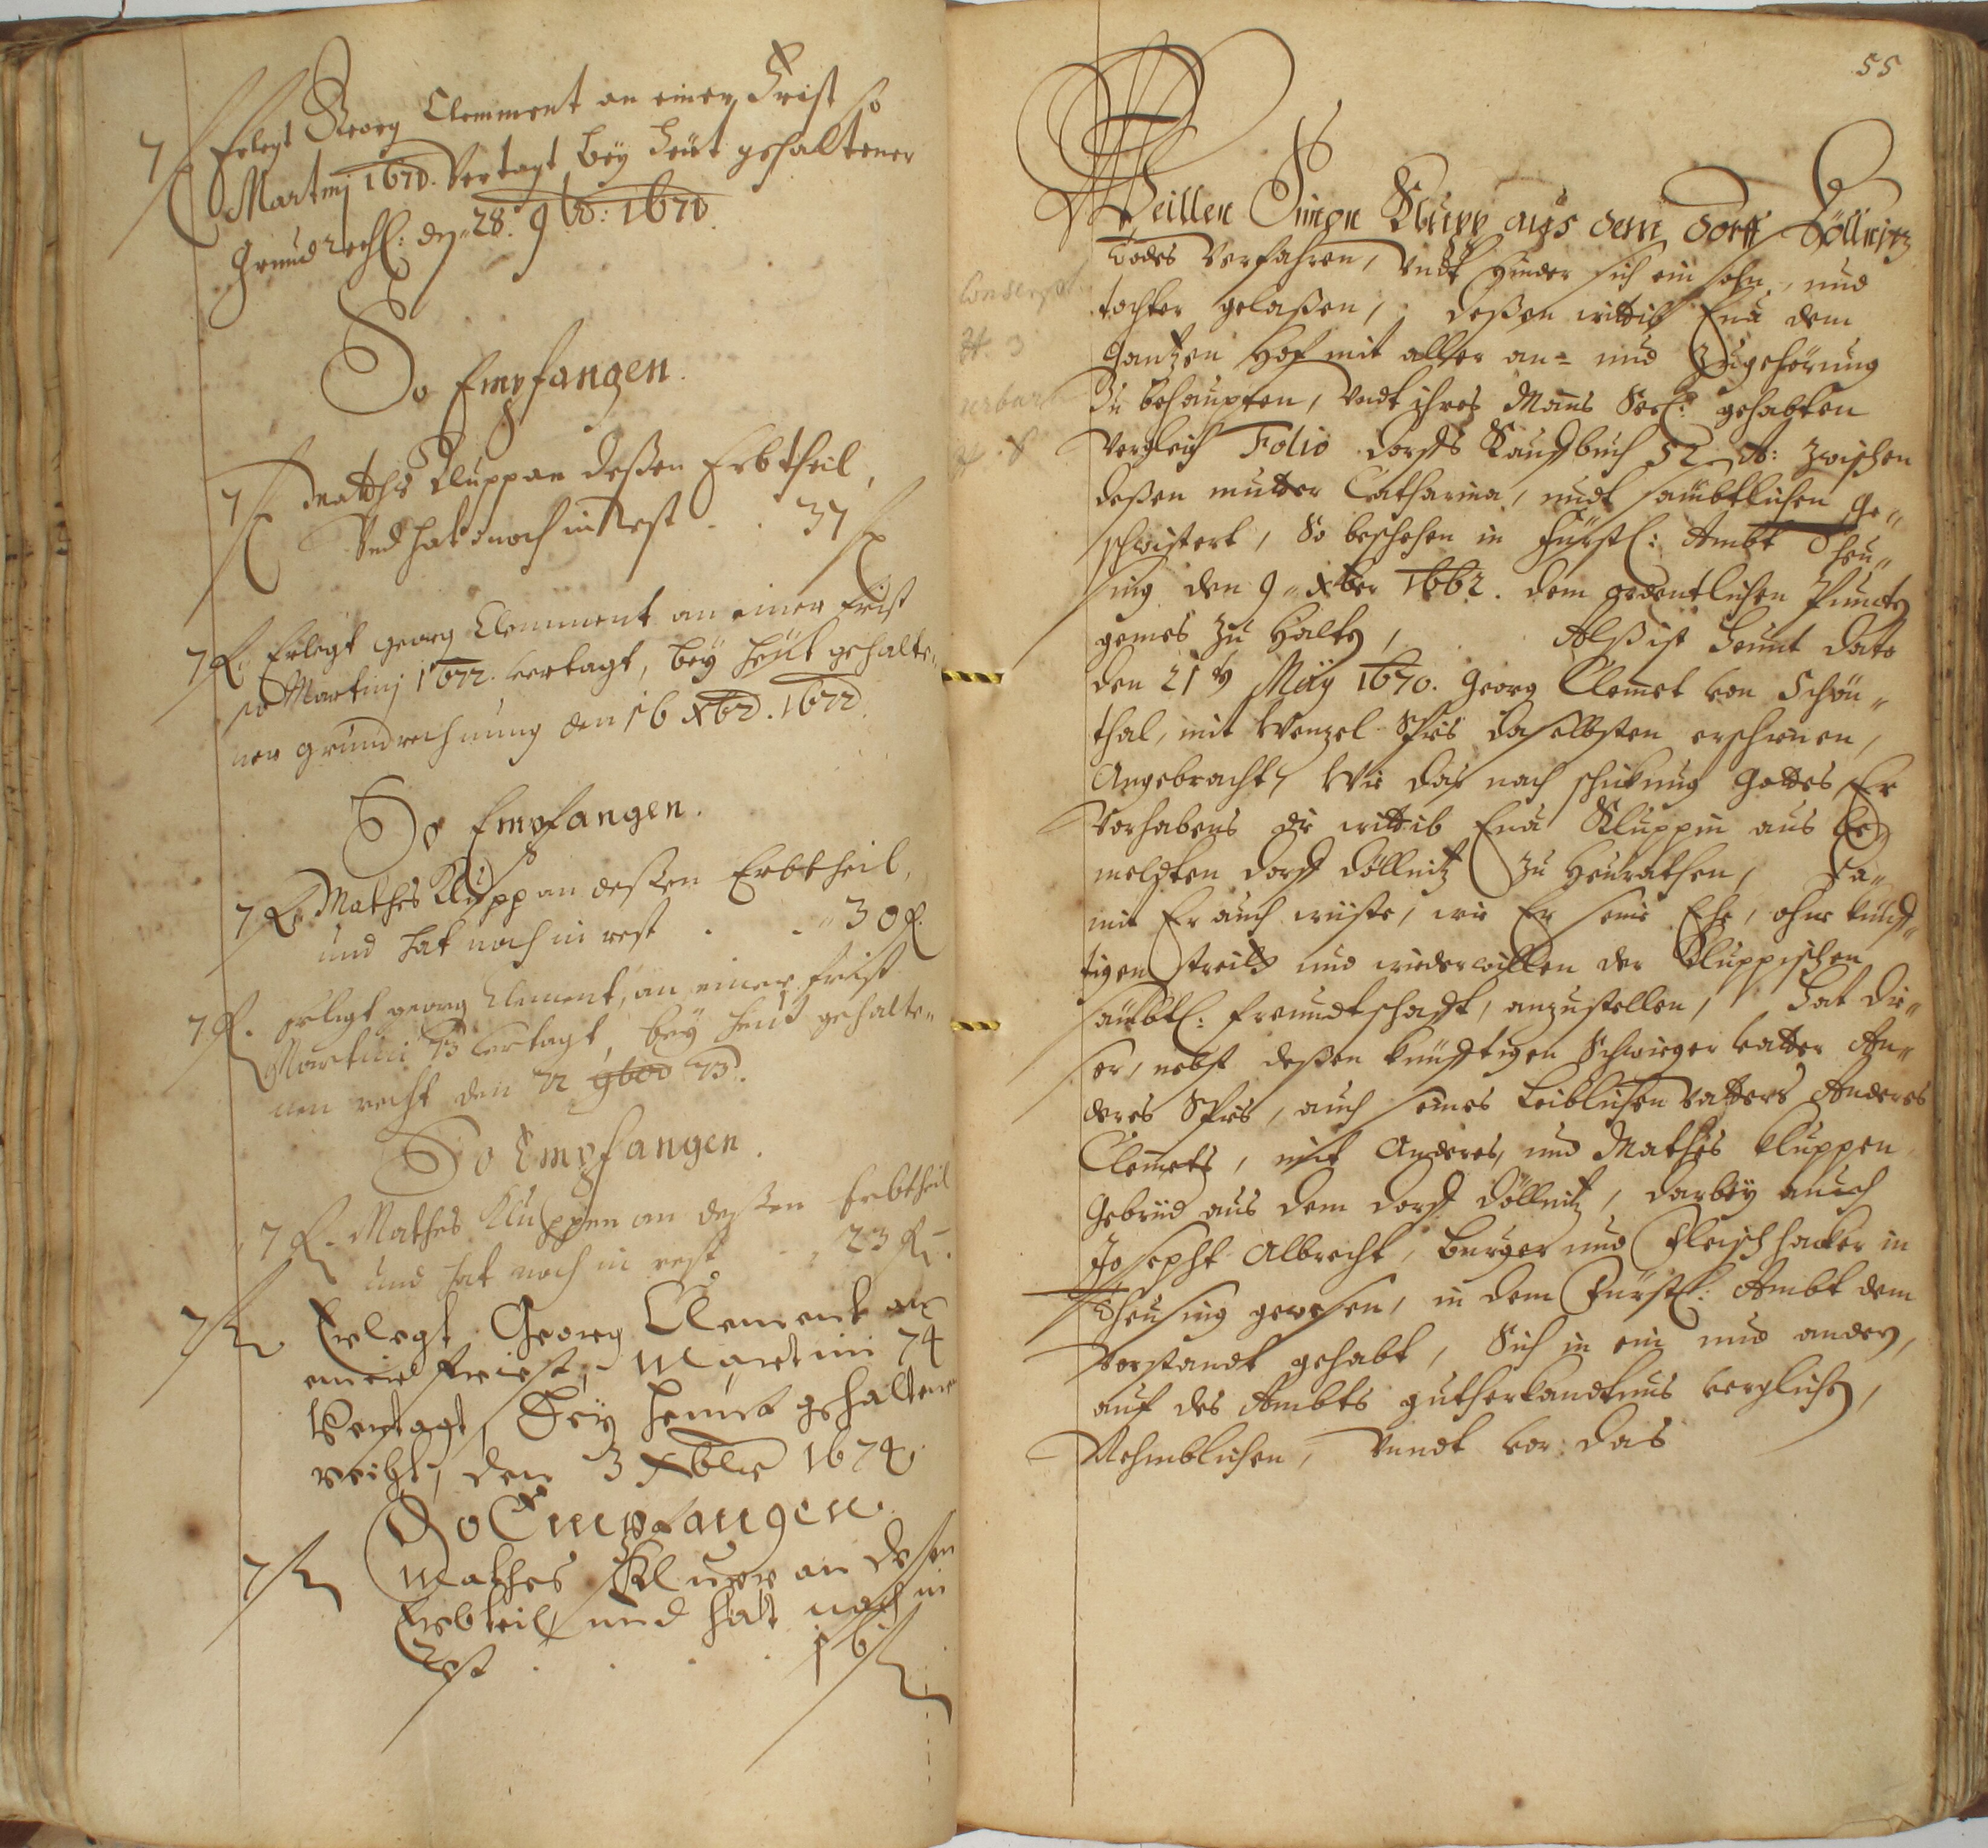 7 f Erlegt Georg Clemment an einer Frist so
Martinj 1670. Vertagt bey heut gehaltener
Grundrech: den 28. 9br: 1670.
So Empfangen.
7 f Matthes Kluppan deßen Erbtheil,
Vnd hat noch in Rest . . 37 f
7 f. Erlegt georg Clemment an einer Frist
so Martinj 1672. vertagt, bey heut gehalte„
ner grundrechnung den 16 Xbr. 1672.
So Empfangen.
7 f. Mathes Klupp an deßen Erbtheil,
und hat noch in rest . . „ 30 f.
7 f. Erlegt georg Clement, an einer Frist
Martini 73 vertagt, bey heut gehalte„
nen recht den 22 9br 73.
So Empfangen.
7 f. Mathes Kluppen an deßen Erbtheil
und hat noch in rest . „ 23 f.
7 f Erlegt Georg Clement an
einer Friest, Martini 74
Vertagt, Bey heunt gehalten
recht, den 3 Xbler 1674.
So Empfangen.
7 f Mathes Klupp an desen
Erbteil und hat noch in
Rest . . . . 16 f
55
Weillen Simon Klupp aus dem Dorff Döllnitz
Todes Verfahren, Vndt hinder sich ein sohn, und
tochter gelaßen, deßen wittib Eua dem
Gantzen Hof mit aller an= und Zugehörung
Zu behaupten, Vndt ihres Mans Seel: gehabten
Vergleich Folio dorffs Kauffbuch 52 A: zwischen
deßen mutter Catharina, undt sambtlichen Ge„
schwistert, So beschehen in Fürstl: Ambt Theu„
sing den 9„ Xber 1662. dem ordentlichen Puncten
gemes zu halten, Alß ist heunt dato
den 21ten Maÿ 1670. Georg Clemet von Schön„
thal, mit Wenzel daselbsten erschienen,
Angebracht, Wie das nach schickung Gottes, Er
Vorhabens die wittib Eua Kluppin aus be„
melten dorff Döllnitz zu heurathen, Da„
mit Er auch wüste, wie Er seine Ehe, ohne künff„
tigen streitt und wiederwillen der Kluppischen
sambtl: freundtschafft, anzustellen, Hat die„
ser, nebst deßen künfftigen Schwieger vatter An„
deres, auch seines leiblichen Vatters Anderes
Clemets, mit Anderes, und Mathes Kluppen
Gebrüd aus dem dorff Döllnitz, darbey auch
Josepht Albrecht, burger und Fleischhacker in
Theusing gewesen, in dem Fürstl: Ambt dem
Vorstandt gehabt, Sich in ein und ander,
auf des Ambts verglichen,
Nehmblichen, Vnndt vor das